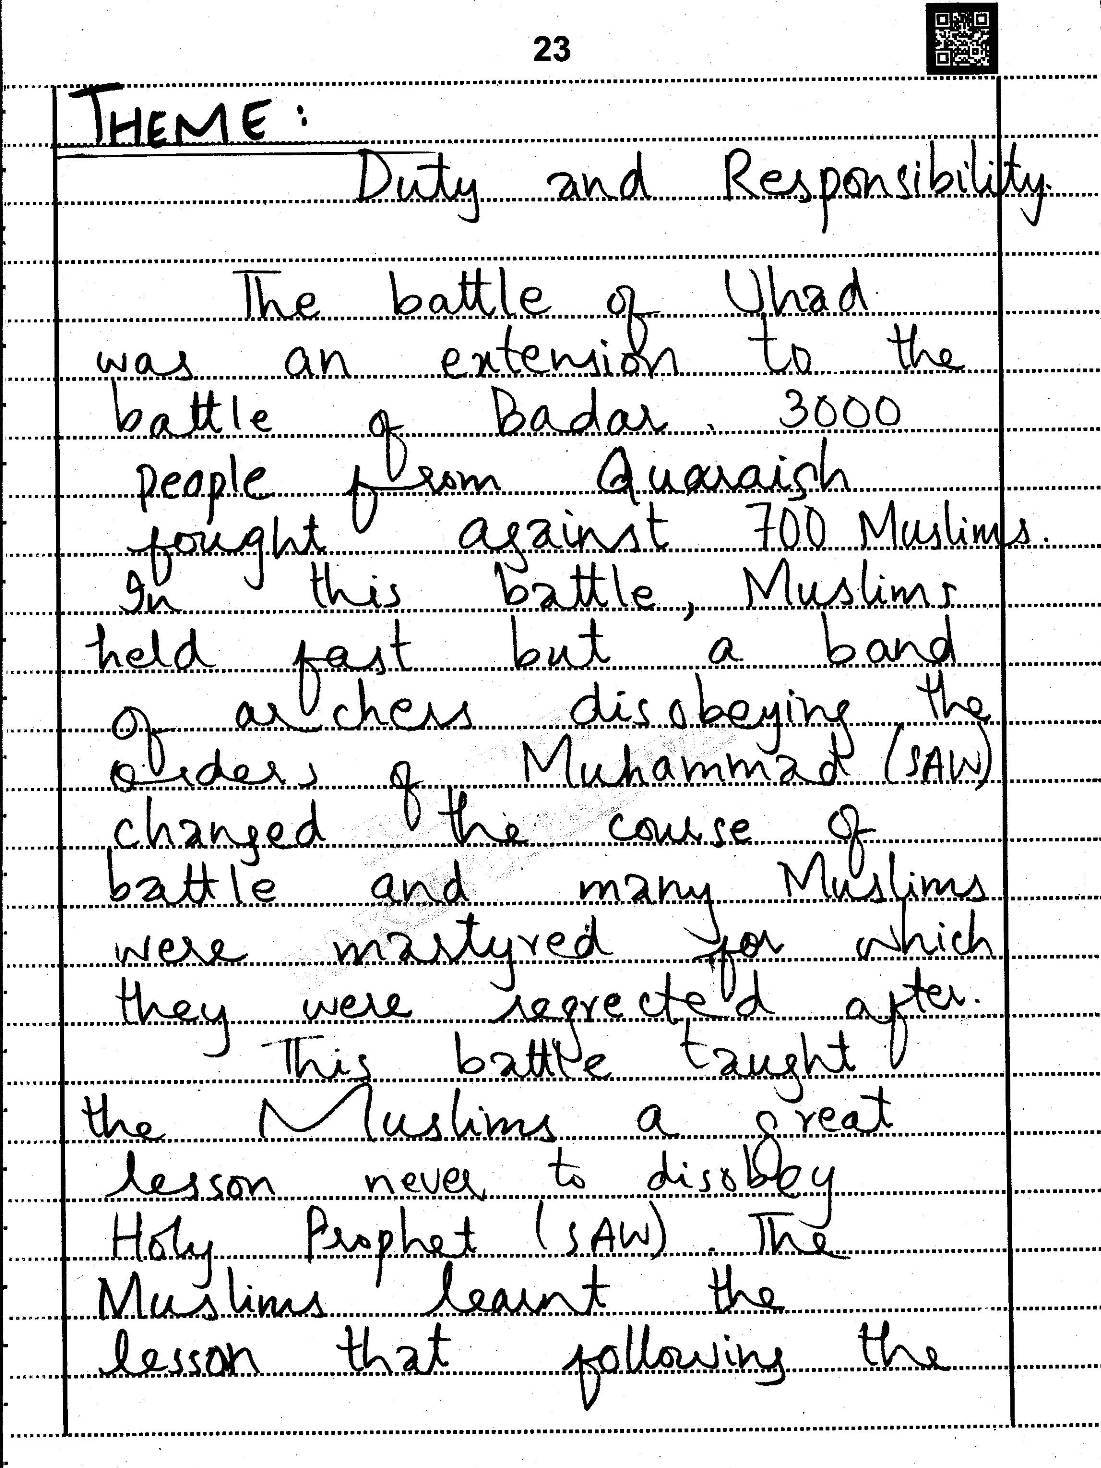 23
THEME:
Duty and Responsibility.
The battle of Uhad
was an extension to the
battle of Badar. 3000
people from Quaraish
fought against 700 Muslims.
In this battle, Muslims
held fast but a band
of archers disobeying the
orders of Muhammad (SAW)
changed the course of
battle and many Muslims
were martyred for which
they were regrected after.
This battle taught
the Muslims a great
lesson never to disobey
Holy Prophet (SAW). The
Muslims learnt the
lesson that following the